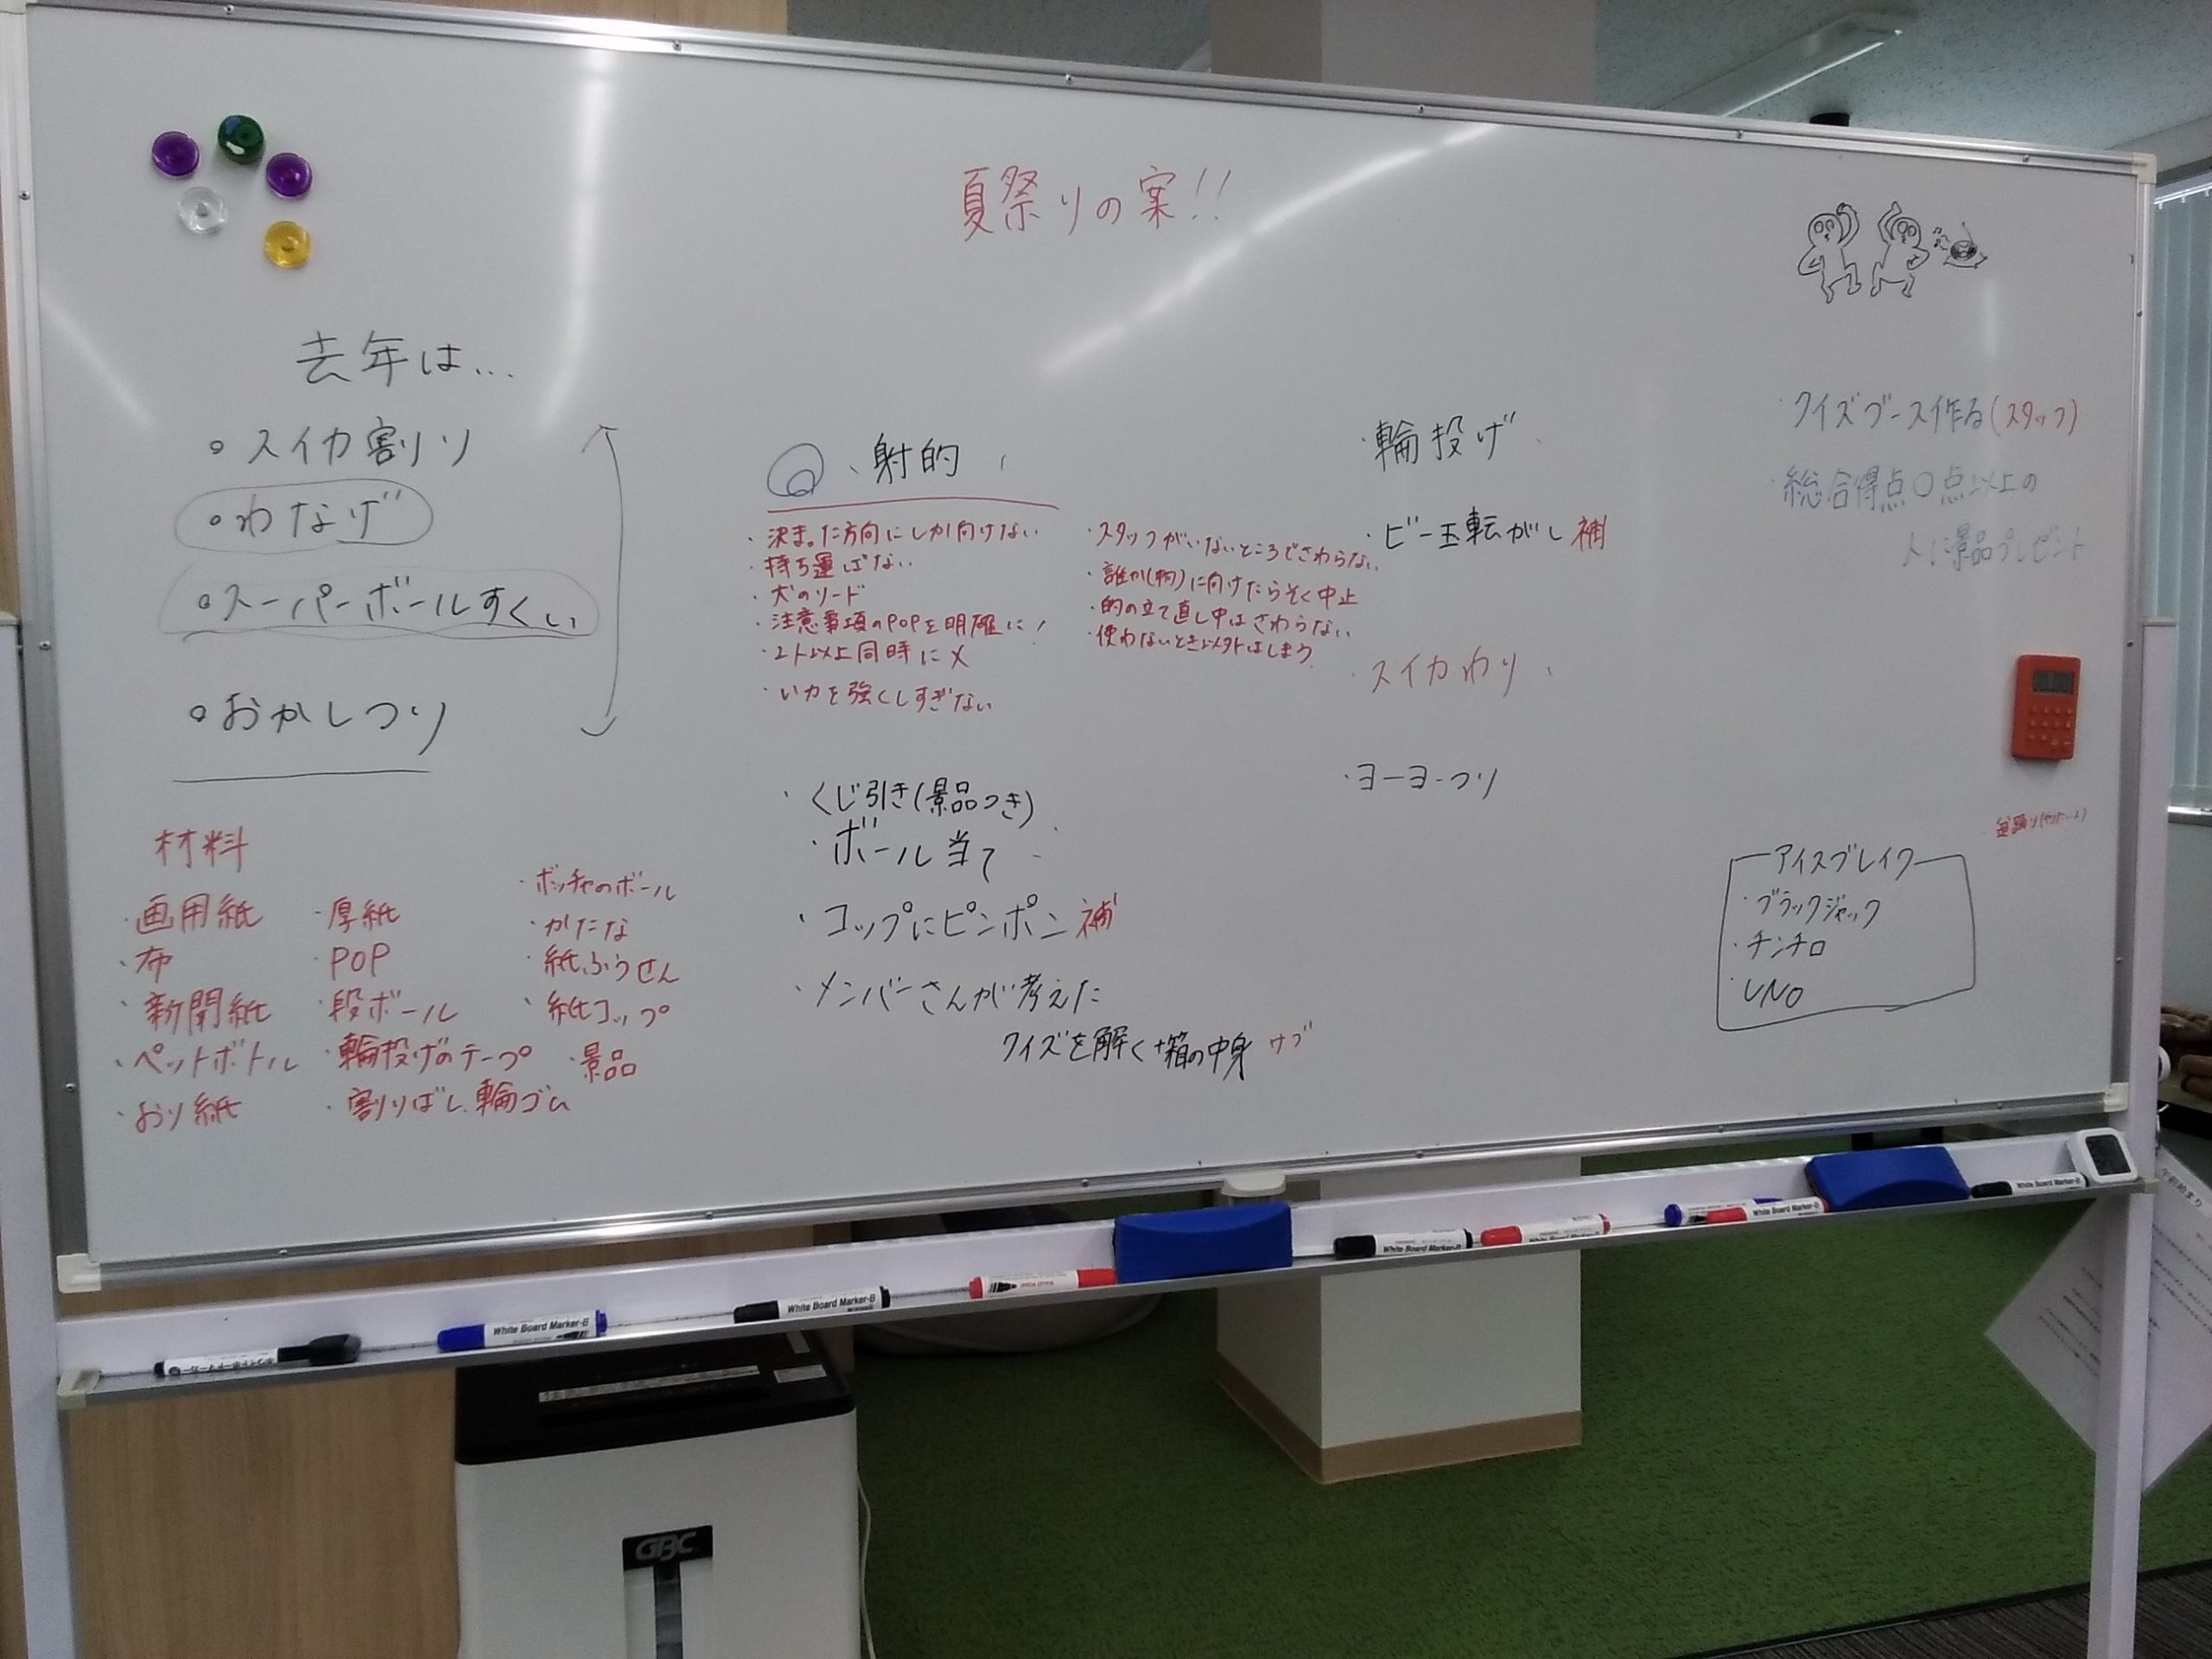 夏祭りの案!!
去年は…
○スイカ割り
○わなげ
○スーパーボールすくい
○おかしつり
材料
・画用紙
・布
・新聞紙
・ペットボトル
・おり紙
・厚紙
・POP
・段ボール
・輪投げのテープ
・割りばし、輪ゴム
・ボッチャのボール
・かたな
・紙ふうせん
・紙コップ
・景品
・射的
・決まった方向にしか向けない
・持ち運ばない
・犬のリード
・注意事項のPOPを明確に!
・2人以上同時に×
・い力を強くしすぎない
・スタッフがいないところでさわらない
・誰か(物)に向けたらそく中止
・的の立て直し中はさわらない
・使わないとき以外はしまう
・くじ引き(景品つき)
・ボール当て
・コップにピンポン 補
・メンバーさんが考えた
クイズを解く+箱の中身 サブ
・輪投げ
・ビー玉転がし 補
・スイカわり
・ヨーヨーつり
・クイズブース作る(スタッフ)
・総合得点○点以上の
人に景品プレゼント
盆踊り
アイスブレイク
・ブラックジャック
・チンチロ
・UNO
White Board Marker-B
White Board Marker-B
White Board Marker-B
White Board Marker-B
White Board Marker-B
GBC